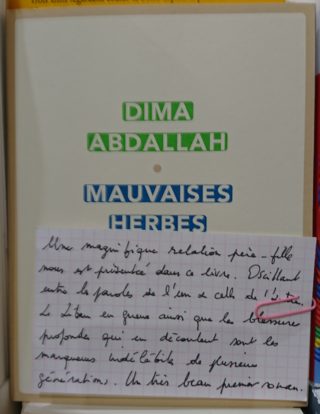 DIMA
ABDALLAH
MAUVAISES
HERBES
Une magnifique relation père-fille
nous est présentée dans ce livre. Oscillant
entre les paroles de l'un & celles de l'autre.
Le Liban en guerre ainsi que les blessures
profondes qui en découlent sont les
marqueurs indélébiles de plusieurs
générations. Un très beau premier roman.